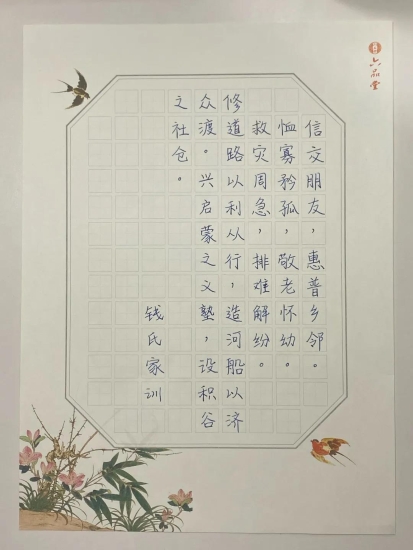 六品堂
信交朋友，惠普乡邻。
恤寡矜孤，敬老怀幼。
救灾周急，排难解纷。
修道路以利从行，造河船以济
众渡。兴启蒙之义塾，设积谷
之社仓。
钱氏家训